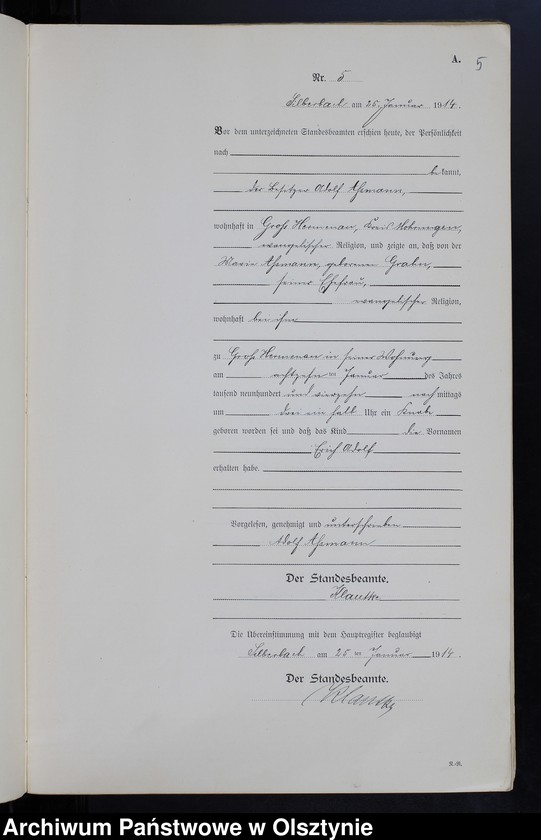 A. 5
Nr. 5
Silberbach am 25. Januar 1914.
Vor dem unterzeichneten Standesbeamten erschien heute, der Persönlichkeit
nach
bekannt,
der Besitzer Adolf
wohnhaft in Groß Hermenau, Kreis Mohrungen,
evangelischer Religion, und zeigte an, daß von der
Marie geborenen
seiner Ehefrau,
evangelischer Religion,
wohnhaft bei ihm
zu Groß Hermenau in seiner Wohnung
am achtzehn ten Januar des Jahres
tausend neunhundert und vierzehn nachmittags
um drei ein halb Uhr ein Knabe
geboren worden sei und daß das Kind die Vornamen
Erich Adolf
erhalten habe.
Vorgelesen, genehmigt und unterschrieben
Adolf
Der Standesbeamte.
Klautke
Die Übereinstimmung mit dem Hauptregister beglaubigt
Silberbach am 25 ten Januar 1914.
Der Standesbeamte.
Klautke
Archiwum Państwowe w Olsztynie